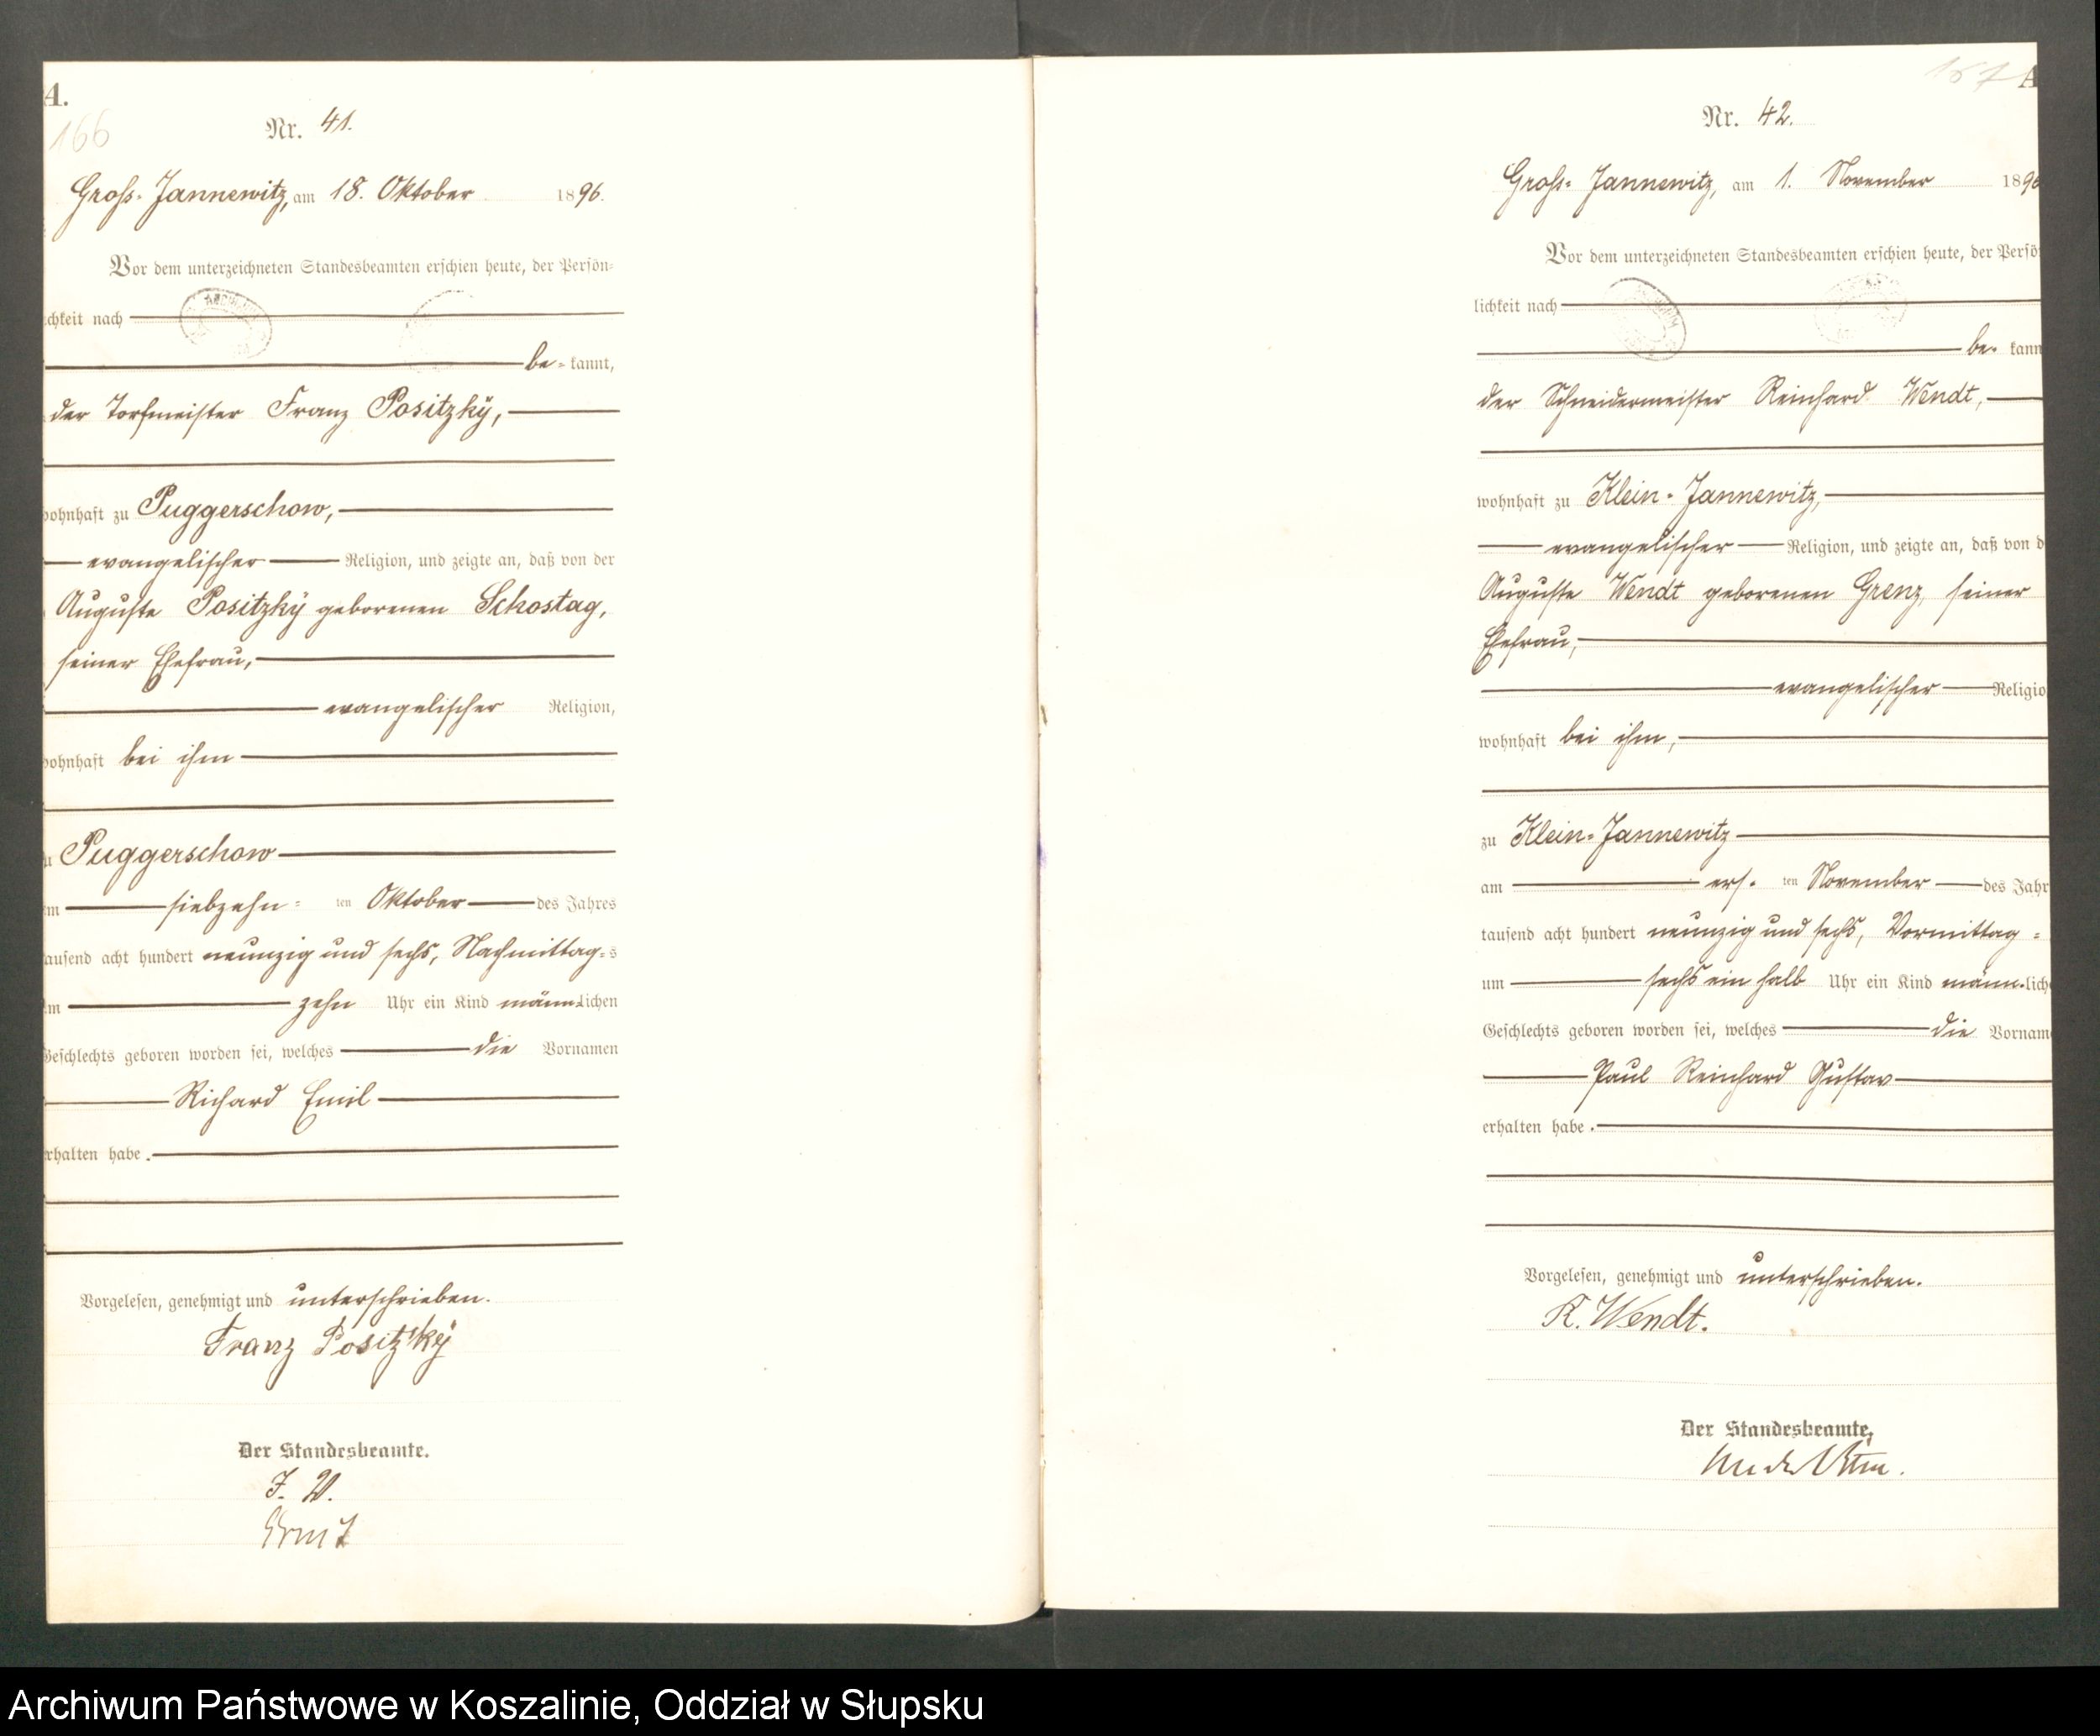 A.
166
Nr. 41.
Groß-Jannewitz, am 18. Oktober 1896.
Vor dem unterzeichneten Standesbeamten erschien heute, der Persön-
chkeit nach
be- kannt,
der Torfmeister Franz Positzkÿ,
ohnhaft zu Puggerschow,
evangelischer Religion, und zeigte an, daß von der
Auguste Positzkÿ geborenen Schostag,
seiner Ehefrau,
evangelischer Religion,
ohnhaft bei ihm
u Puggerschow
m siebzehn- ten Oktober des Jahres
ausend acht hundert neunzig und sechs, Nachmittag-s
m zehn Uhr ein Kind männ-lichen
Geschlechts geboren worden sei, welches die Vornamen
Richard Emil
rhalten habe.
Vorgelesen, genehmigt und unterschrieben.
Franz Positzkÿ
Der Standesbeamte.
J. V.
167 A
Nr. 42.
Groß-Jannewitz, am 1. November 1896
Vor dem unterzeichneten Standesbeamten erschien heute, der Persö
lichkeit nach
be- kann
der Schneidermeister Reinhard Wendt,
wohnhaft zu Klein-Jannewitz,
evangelischer Religion, und zeigte an, daß von d
Auguste Wendt geborenen Grenz, seiner
Ehefrau,
evangelischer Religio
wohnhaft bei ihm,
zu Klein-Jannewitz
am ers- ten November des Jahr
tausend acht hundert neunzig und sechs, Vormittag-
um sechs ein halb Uhr ein Kind männ-lich
Geschlechts geboren worden sei, welches die Vornam
Paul Reinhard Gustav
erhalten habe.
Vorgelesen, genehmigt und unterschrieben.
R. Wendt.
Der Standesbeamte,
Archiwum Państwowe w Koszalinie, Oddział w Słupsku